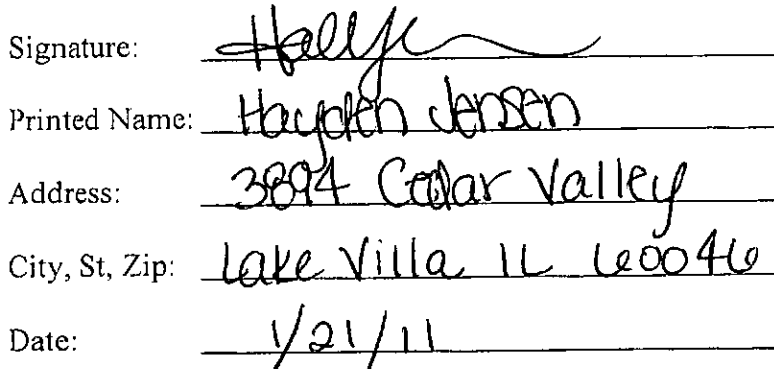 Signature:
Printed Name: Hayden Jensen
Address: 3894 Cedar Valley
City, St, Zip: Lake Villa IL 60046
Date: 1/21/11